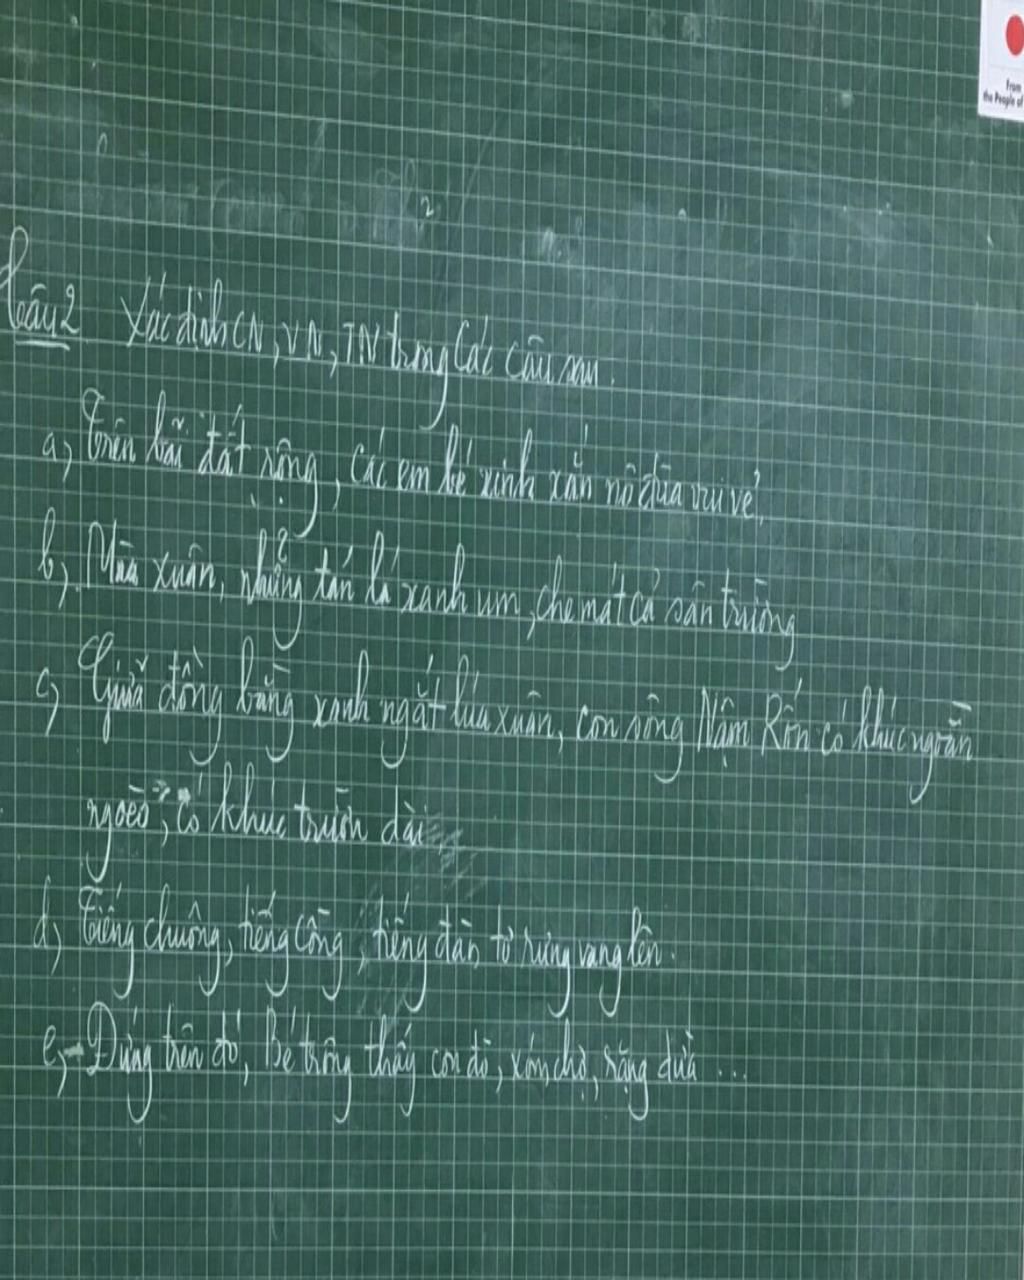 From
the People of
Câu 2 Xác định CN, VN, TN trong các câu sau.
a, Trên bãi đất rộng, các em bé xinh xắn nô đùa vui vẻ.
b, Mùa xuân, những tán lá xanh um, che mát cả sân trường
c, Giữa đồng bằng xanh ngắt lúa xuân, con sông Nậm Rốn có khúc ngoằn
ngoèo, có khúc trườn dài
d, Tiếng chuông, tiếng cồng, tiếng đàn tơ rưng vang lên.
e, Đứng trên đó, Bé trông thấy con đò, xóm chợ, rặng dừa ...